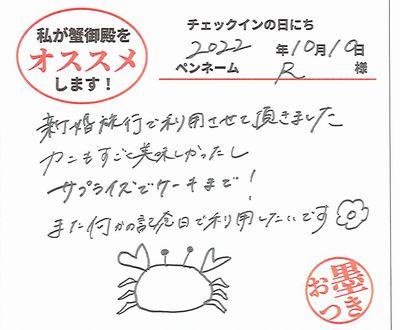 私が蟹御殿を
オススメ
します！
チェックインの日にち
2022 年10月10日
ペンネーム R 様
新婚旅行で利用させて頂きました
カニもすごく美味しかったし
サプライズでケーキまで！
また何かの記念日で利用したいです
お墨つき